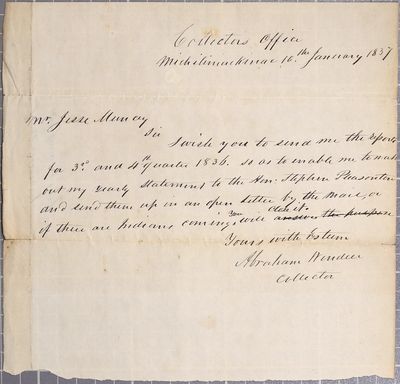 Collectors Office
Michilimackinac 10.th January 1837
Mr. Jesse Muncy
Sir
I wish you to send me the reports
for 3.d and 4th quarter 1836. so as to enable me to make
out my yearly statement to the Hon. Stephen Pleasonton
and send them up in an open letter by the Mail, or
if there are Indians coming, you will do it. answer the purpose
Yours with Esteem
Abraham Wendell
Collector